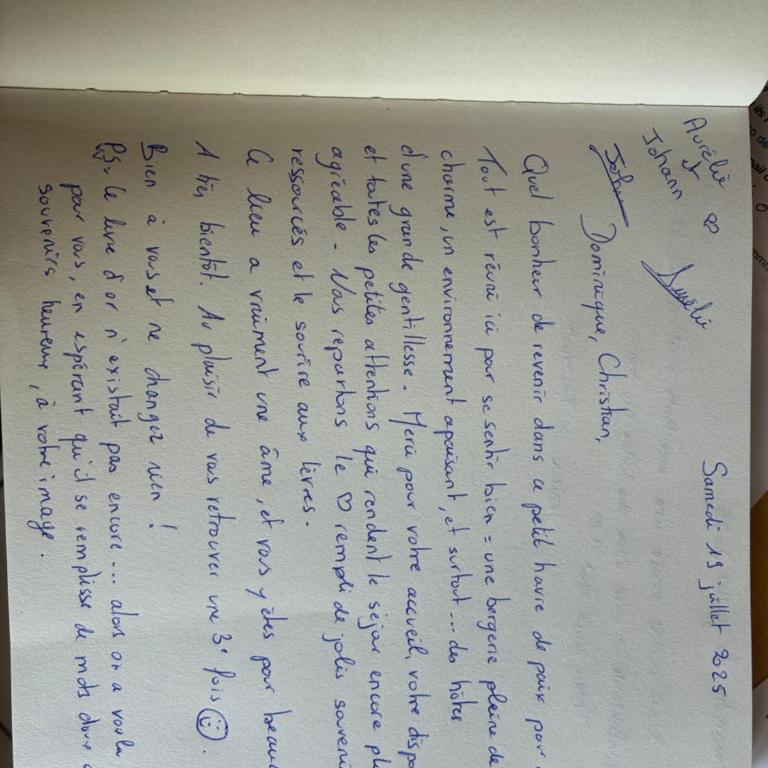 Aurélie
&
Johann ♡
Aurélie
Samedi 19 juillet 2025
Dominique, Christian,
Quel bonheur de revenir dans ce petit havre de paix pour
Tout est réuni ici pour se sentir bien = une bergerie pleine de
charme, un environnement apaisant, et surtout... des hôtes
d'une grande gentillesse. Merci pour votre accueil, votre dispo
et toutes les petites attentions qui rendent le séjour encore pl
agréable - Nous repartons le ♡ rempli de jolis souveni
ressourcés et le sourire aux lèvres.
Ce lieu a vraiment une âme, et vous y êtes pour beauc
A très bientôt. Au plaisir de vous retrouver une 3e fois ☺.
Bien à vous et ne changez rien !
PS = Le livre d'or n'existait pas encore... alors on a voulu
pour vous, en espérant qu'il se remplisse de mots doux
souvenirs heureux, à votre image.